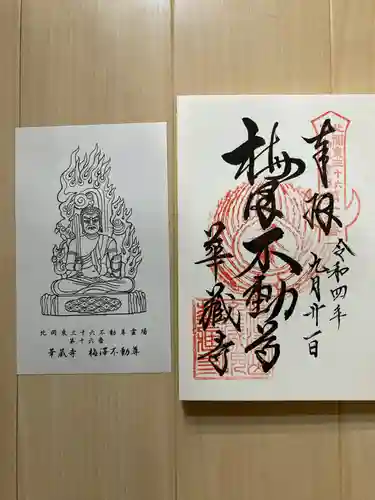 北関東三十六不動尊霊場
第十六番
華蔵寺　梅澤不動尊
奉拝
令和四年
九月廿一日
梅澤不動尊
華蔵寺